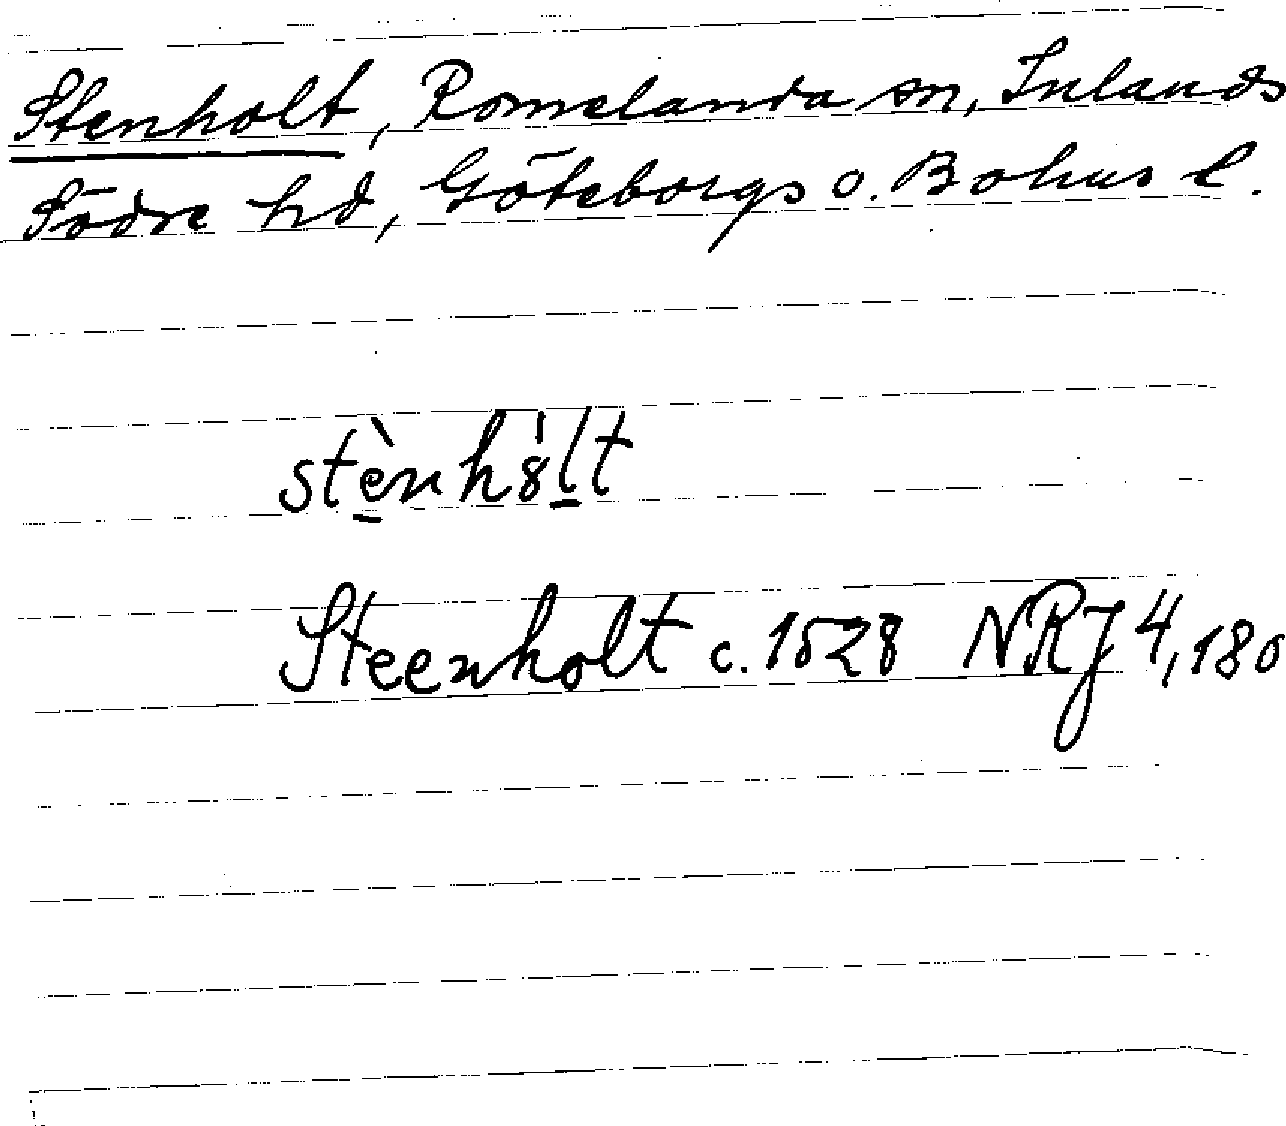 Stenholt, Romelanda sn, Inlands
Södre hd, Göteborgs o. Bohus l.
stè̱nh8̍ḻt
Steenholt c. 1528 NRJ 4,180